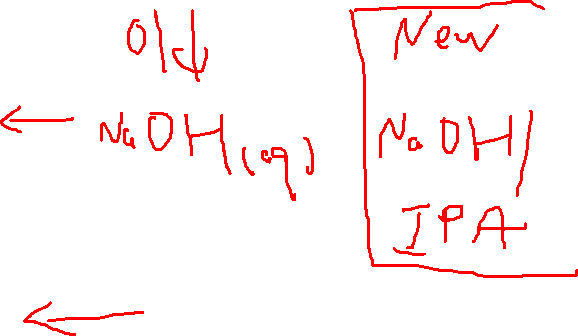 Old
NaOH(aq)
New
NaOH/
IPA